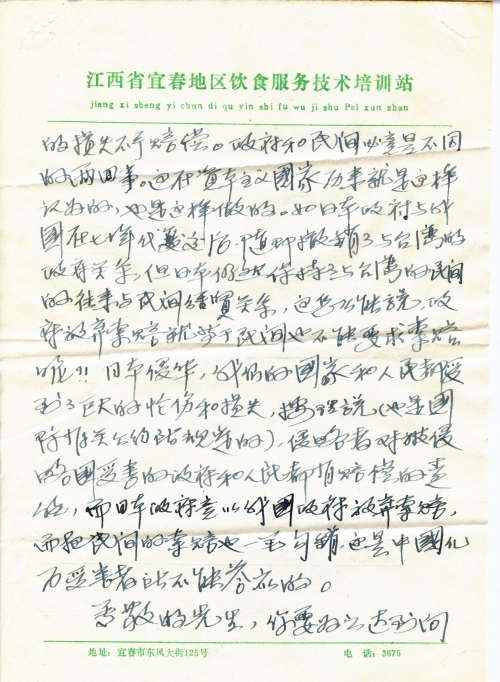 江西省宜春地区饮食服务技术培训站
jiang xi sheng yi chun di qu yin shi fu wu ji shu Pei xun zhan
的损失不予赔偿。政府和民间必竟是不同
的两回事。这在资本主义国家历来就是这样
认为的,也是这样做的。如日本政府与我
國在七十年代复交后,随即撤销了与台湾的
政府关系,但日本仍然保持了与台湾的民间
的往来与民间经贸关系,这怎么能说,政
府放弃索赔就等于民间也不能要求索赔
呢?!日本侵华,我们的國家和人民都受
到了巨大的性伤和损失,按理说,(也是國
际有关公约所规定的),侵略者对被侵
略国受害的政府和人民都有赔偿的责
任,而日本政府竟以我國政府放弃索赔,
而把民间的索赔也一笔勾销,这是中國亿
万受害者所不能答应的。
尊敬的先生,你要为公达到问
地址:宜春市东风大街125号
电 话:3675